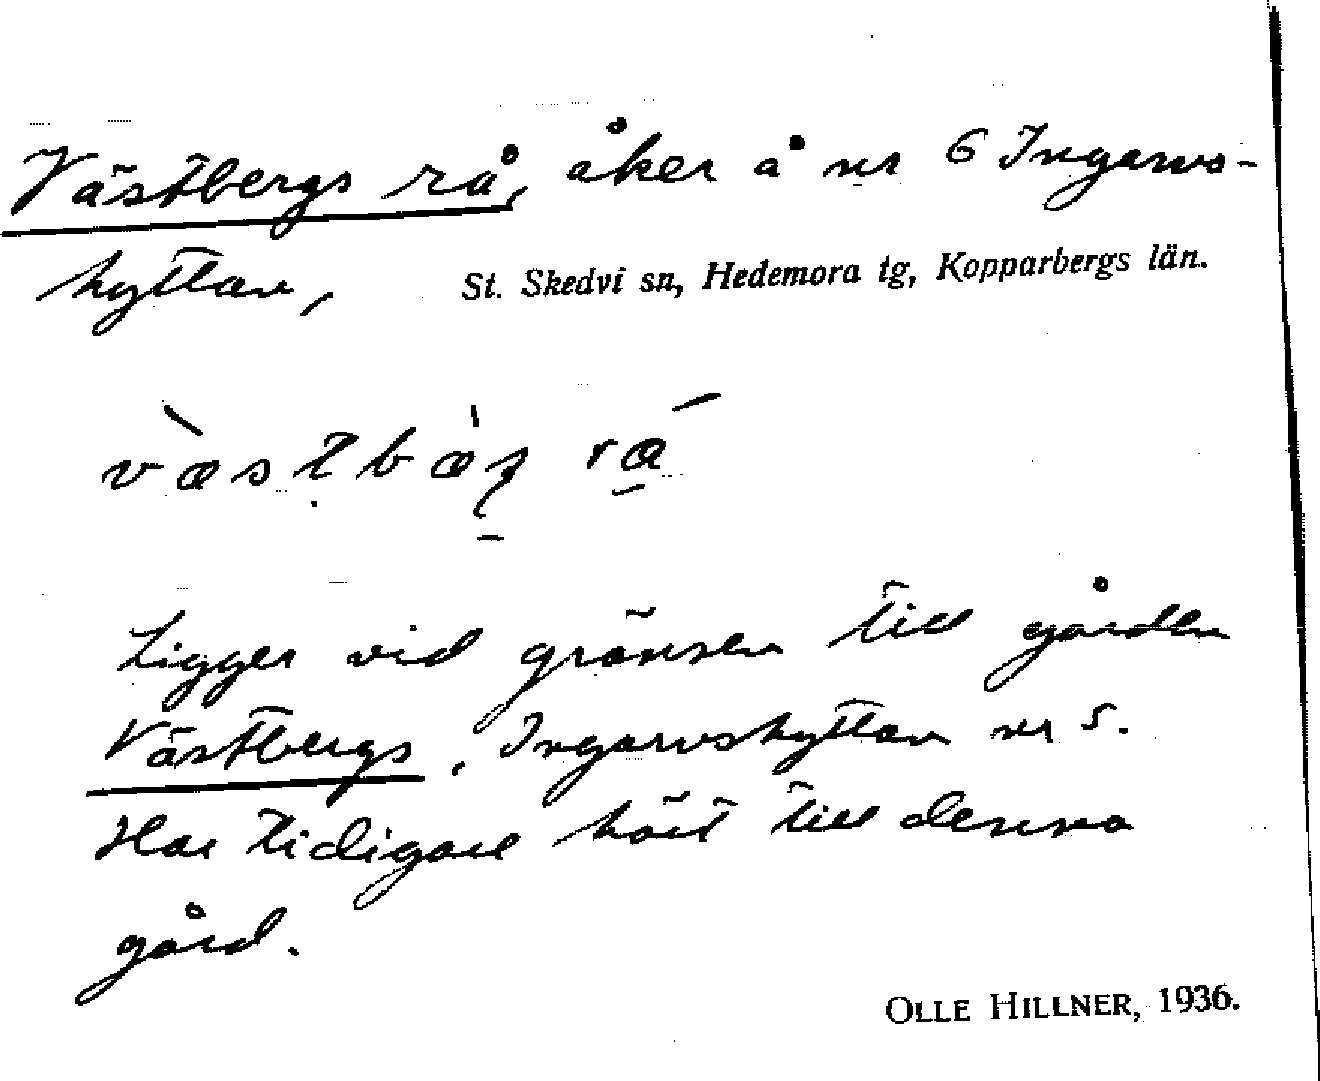 Västbergs rå, åker å nr 6 Ingarvs-
hyttan, St. Skedvi sn, Hedemora tg, Kopparbergs län.
Ligger vid gränsen till gården
Västbergs, Ingarvshyttan nr 5.
Har tidigare hört till denna
gård.
OLLE HILLNER, 1936.